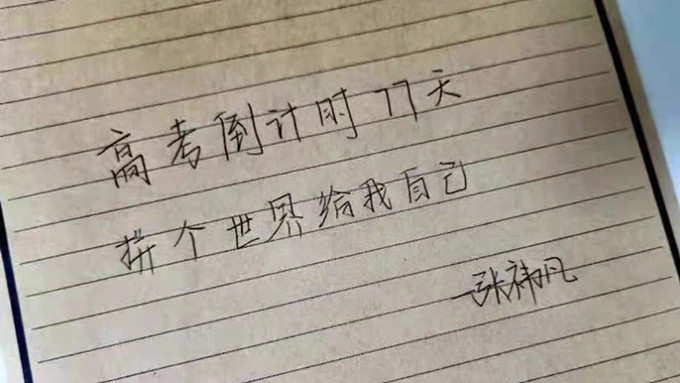 高考倒计时 77天
拼个世界给我自己
—张祎凡